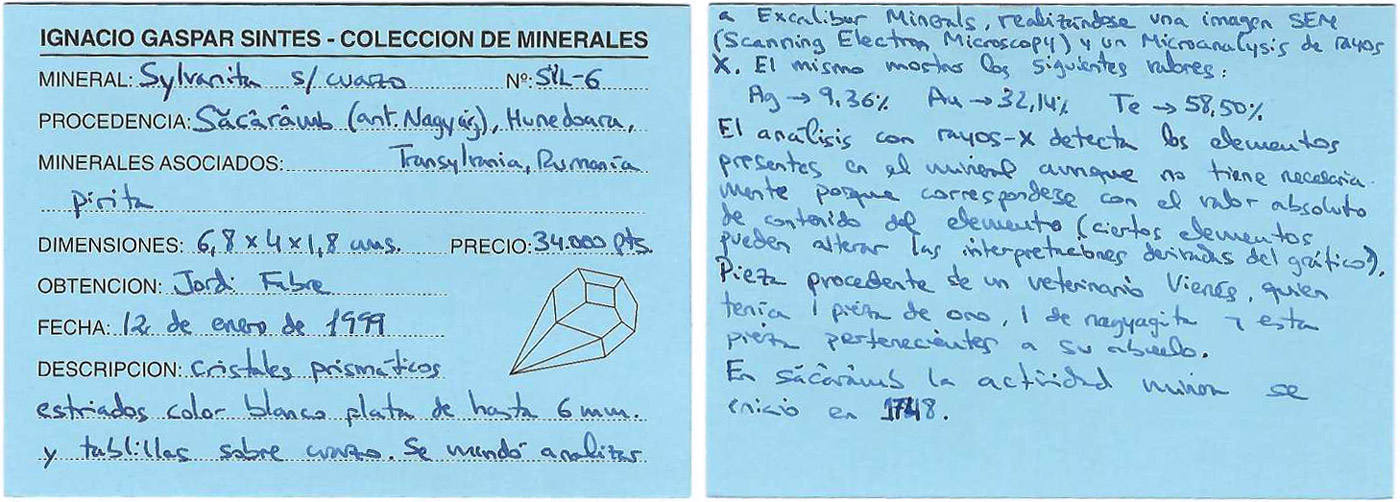 IGNACIO GASPAR SINTES - COLECCION DE MINERALES
MINERAL: Sylvanita s/ cuarzo Nº: SYL-6
PROCEDENCIA: Săcărâmb (ant. Nagyág), Hunedoara,
MINERALES ASOCIADOS: Transylvania, Rumanía
pirita
DIMENSIONES: 6,8 x 4 x 1,8 cms. PRECIO: 34.000 pts.
OBTENCION: Jordi Fabre
FECHA: 12 de enero de 1999
DESCRIPCION: cristales prismáticos
estriados color blanco plata de hasta 6 mm.
y tablillas sobre cuarzo. Se mandó analizar
a Excalibur Minerals, realizándose una imagen SEM
(Scanning Electron Microscopy) y un Microanalysis de rayos
X. El mismo mostro los siguientes valores:
Ag → 9,36% Au → 32,14% Te → 58,50%
El análisis con rayos-X detecta los elementos
presentes en el mineral aunque no tiene necesaria-
mente porque corresponderse con el valor absoluto
de contenido del elemento (ciertos elementos
pueden alterar las interpretaciones derivadas del gráfico).
Pieza procedente de un veterinario Vienés, quien
tenía 1 pieza de oro, 1 de nagyagita y esta
pieza pertenecientes a su abuelo.
En săcărâmb la actividad minera se
inicio en 1748.